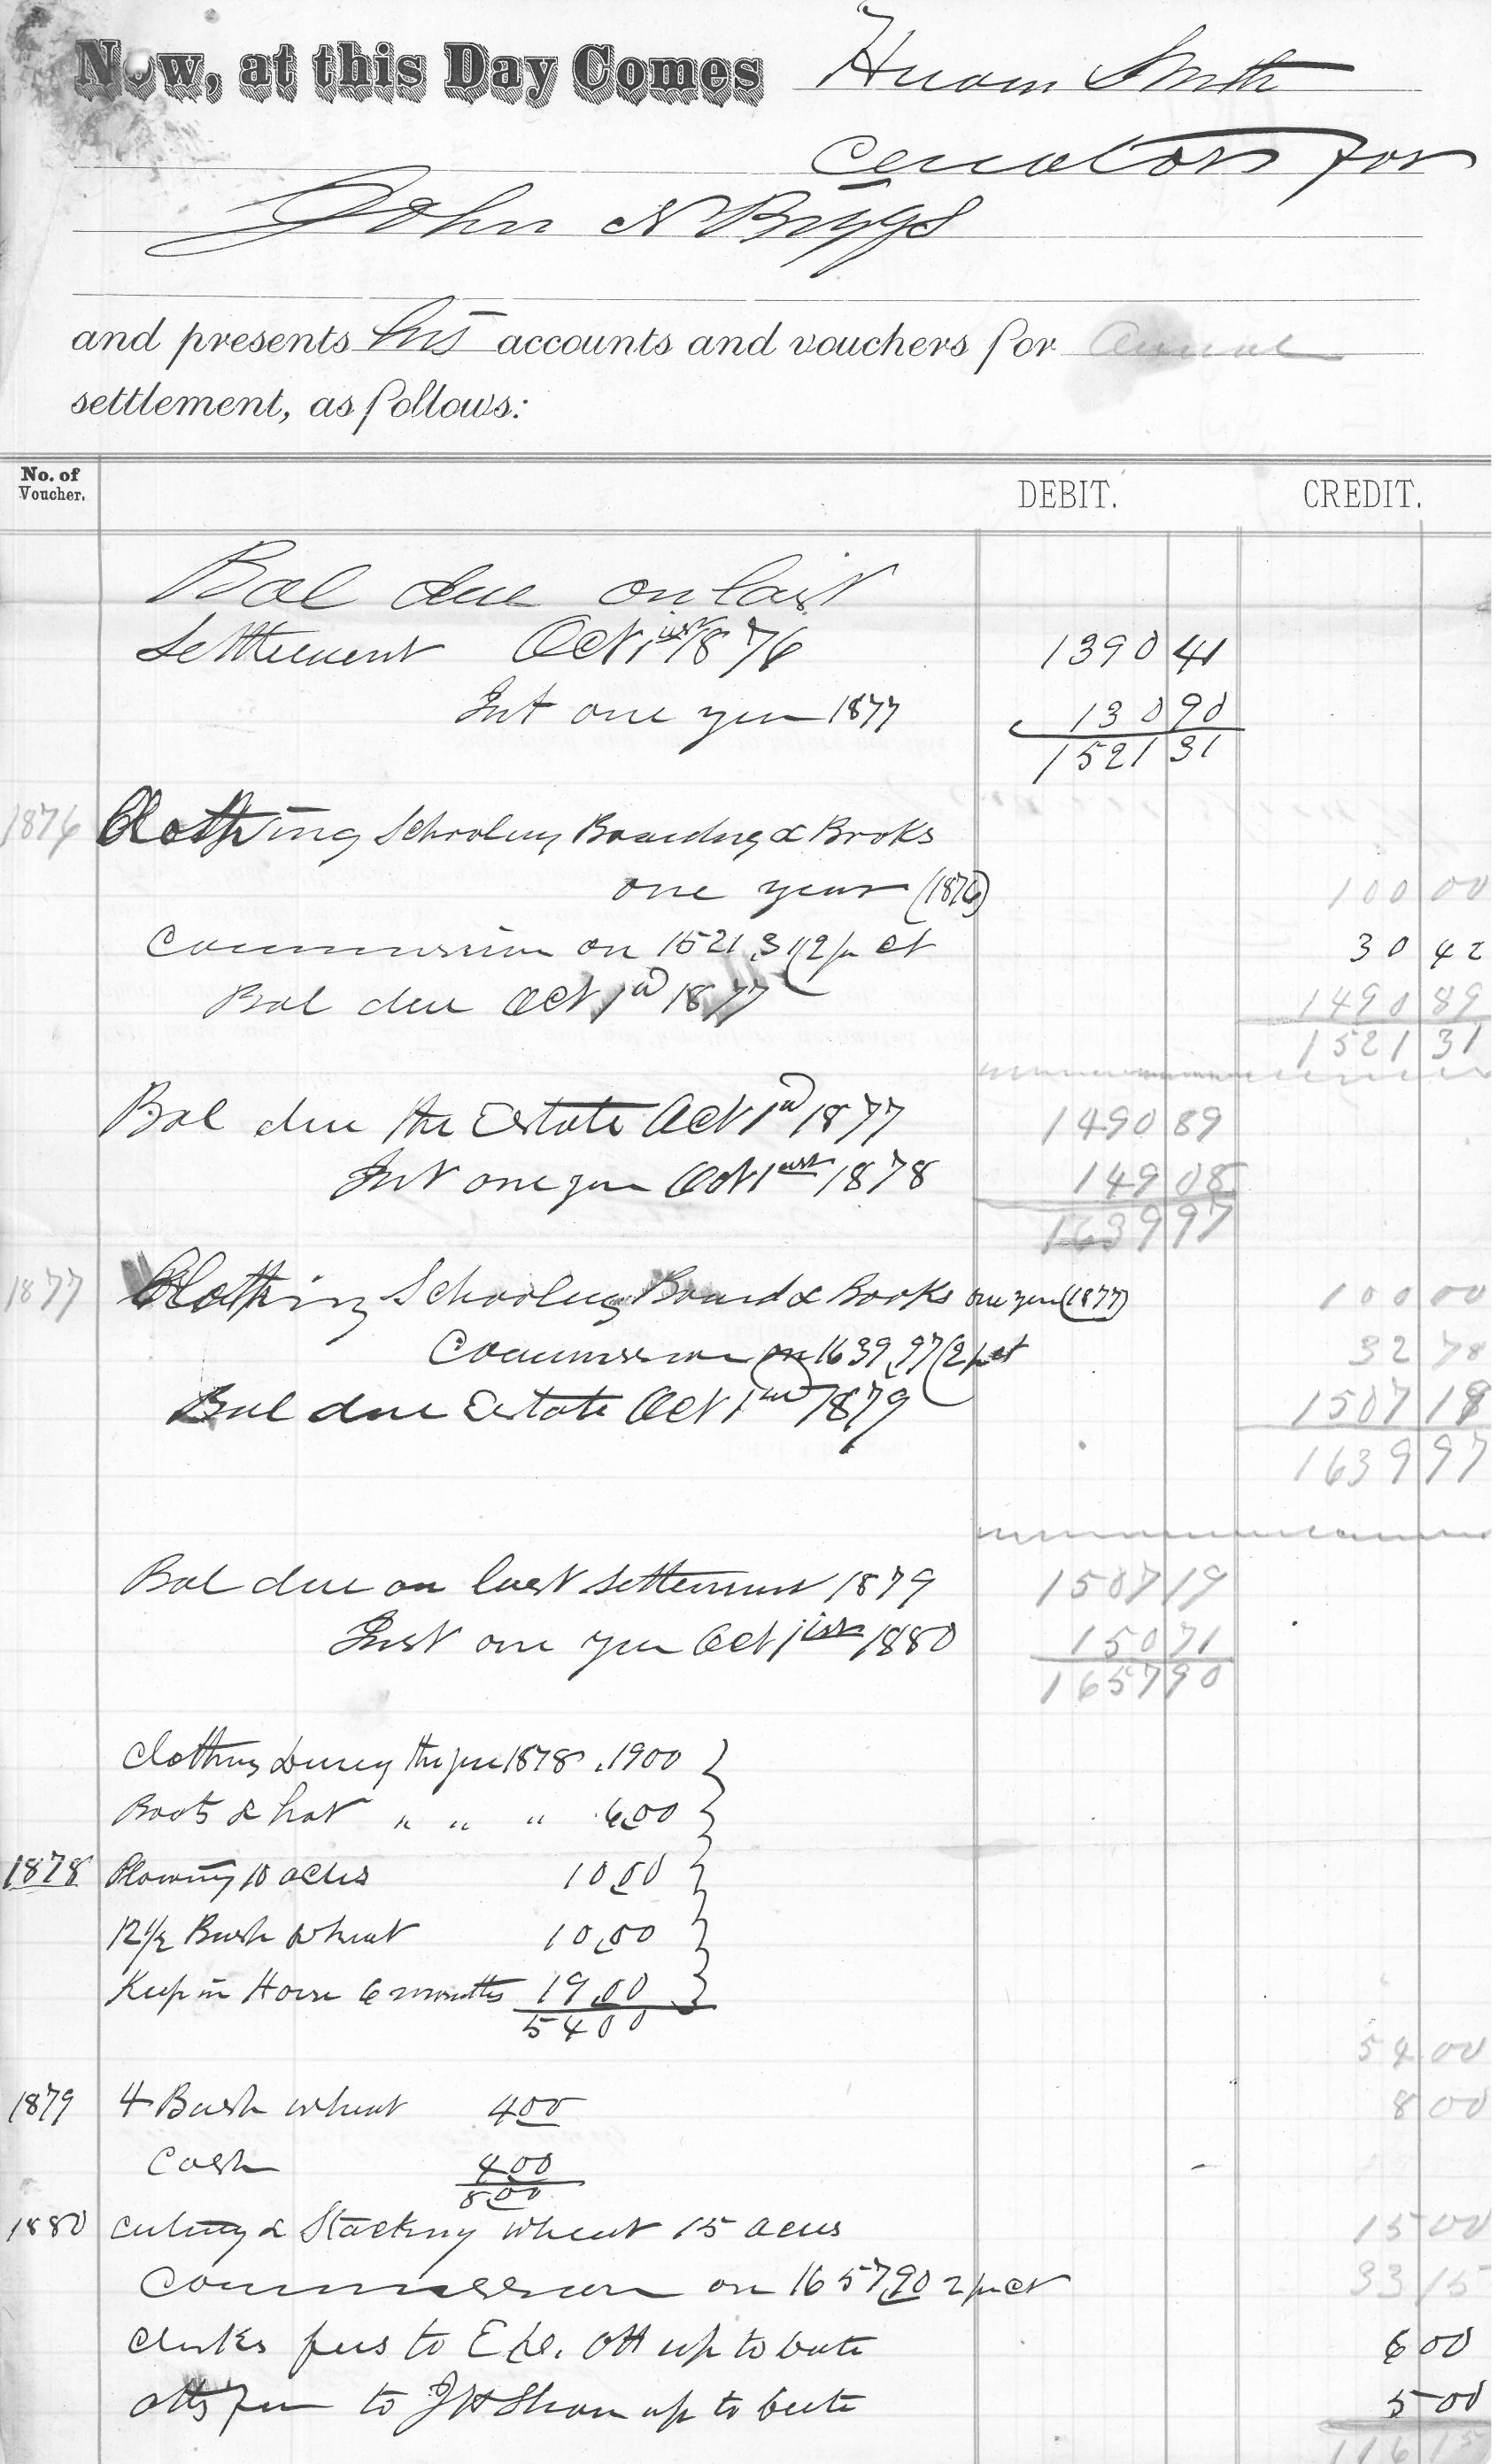 Now, at this Day Comes Hiram Smith
Curator for
John N Briggs
and presents his accounts and vouchers for Annual
settlement, as follows:
No. of Voucher. DEBIT. CREDIT.
Bal due on last
Settlement Oct 1st 1876 1390 41
Int one year 1877 130 90
1521 31
1876 Clothing Schooling Boarding & Books
one year (1876) 100 00
Commission on 1521.31 (2 per ct 30 42
Bal due Oct 1st 1877 1490 89
1521 31
Bal due the Estate Oct 1st 1877 1490 89
Int one year Oct 1st 1878 149 08
1639 97
1877 Clothing Schooling Board & Books one year (1877) 100 00
Commission on 1639.97 (2 per ct 32 78
Bal due Estate Oct 1st 1879 1507 19
1639 97
Bal due on last settlement 1879 1507 19
Inst one year Oct 1st 1880 150 71
1657 90
Clothing During the year 1878 . 1900
Boots & hat " " " 6.00
1878 Plowing 10 acres 10.00
12 1/2 Bush Wheat 10.00
Keepin Horse 6 months 19.00
5400 54 00
1879 4 Bush wheat 400 8 00
Cash 4.00
8.00
1880 Cuting & Stacking wheat 15 acres 15 00
Commission on 1657.90 2 per ct 33 15
Clerks fees to Ott up to date 6 00
Atty fee to J H Shaw up to date 5 00
116 15